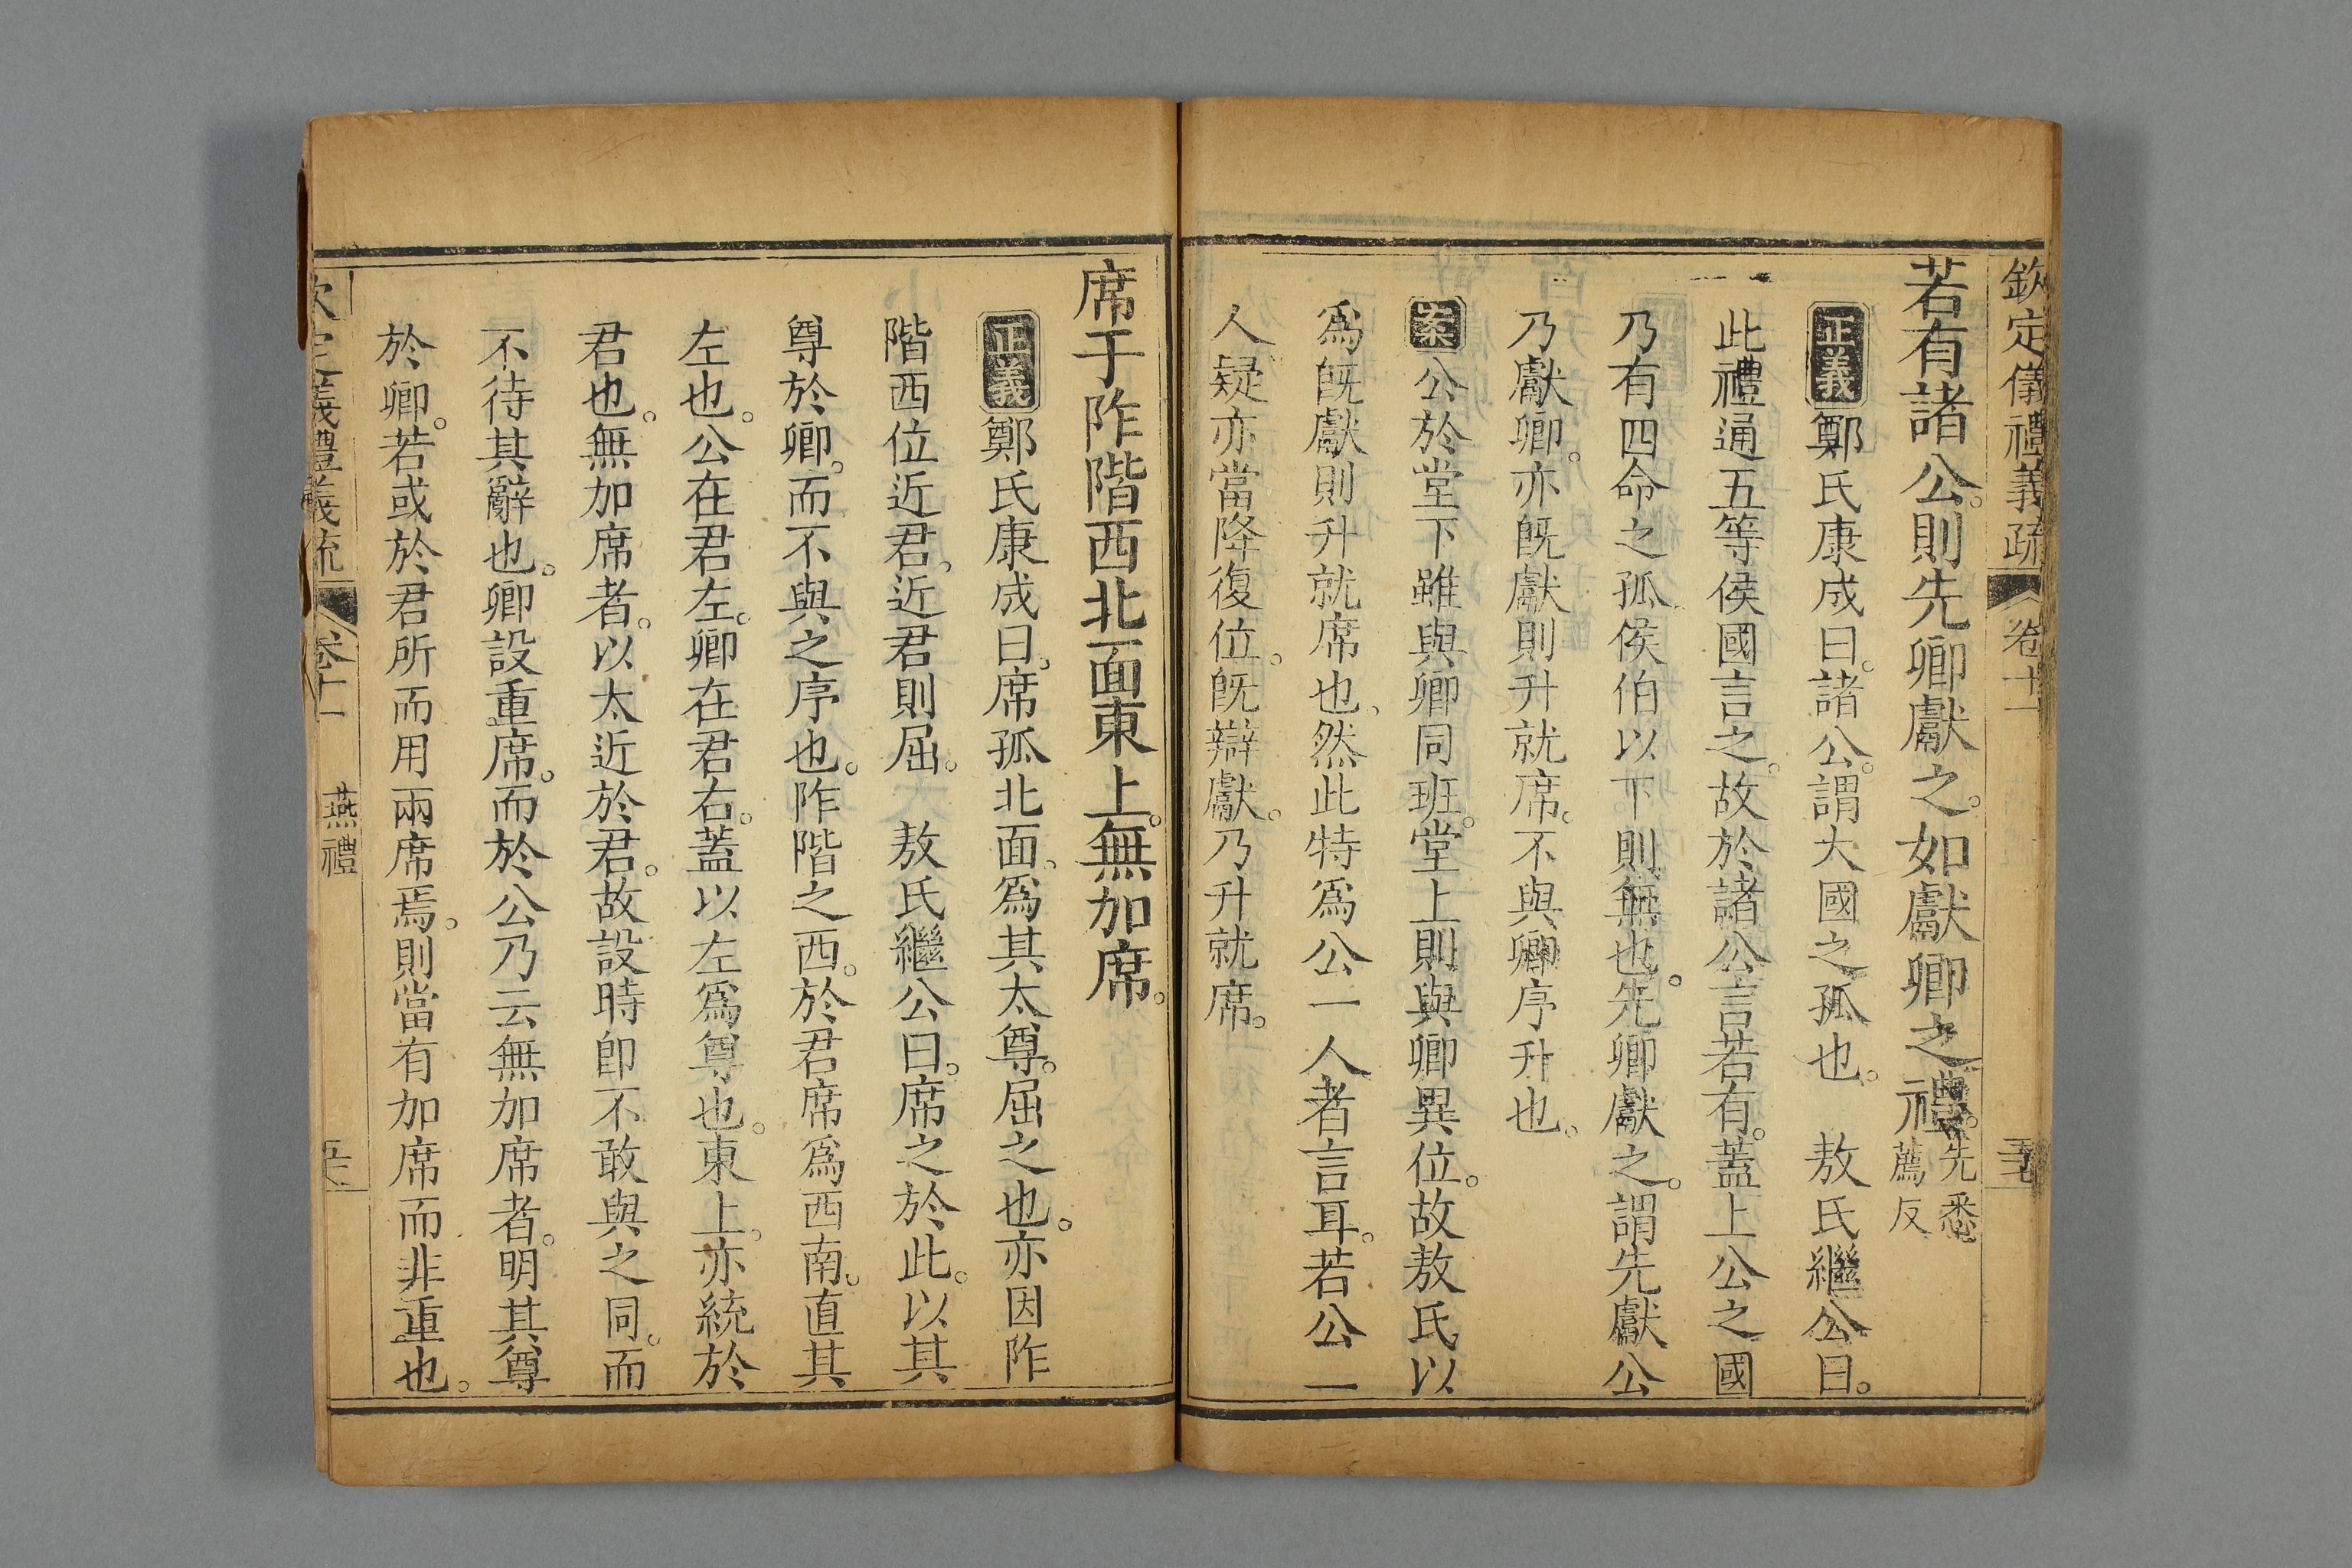 欽定儀禮義疏 卷十一
若有諸公。則先卿獻之。如獻卿之禮。先悉薦反
正義鄭氏康成曰。諸公。謂大國之孤也。 敖氏繼公曰。
此禮通五等侯國言之。故於諸公言若有。蓋上公之國
乃有四命之孤。侯伯以下則無也。先卿獻之。謂先獻公
乃獻卿。亦既獻則升就席。不與卿序升也。
案公於堂下雖與卿同班。堂上則與卿異位。故敖氏以
爲既獻則升就席也、然此特爲公一人者言耳。若公一
人、疑亦當降復位。既辯獻。乃升就席。
席于阼階西北面東上。無加席。
正義鄭氏康成曰。席孤北面。爲其太尊。屈之也。亦因阼
階西位近君。近君則屈。 敖氏繼公曰。席之於此。以其
尊於卿。而不與之序也。阼階之西。於君席爲西南。直其
左也。公在君左。卿在君右。蓋以左爲尊也。東上。亦統於
君也。無加席者。以太近於君。故設時卽不敢與之同。而
不待其辭也。卿設重席。而於公乃云無加席者。明其尊
於卿。若或於君所而用兩席焉。則當有加席而非重也。
義禮義疏 卷十一 燕禮